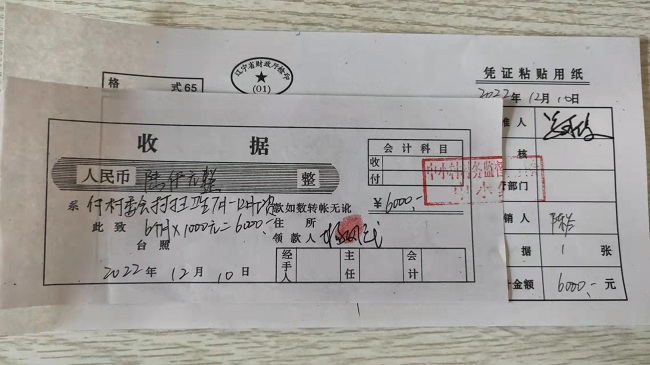 辽宁省财政厅监印
(01)
格 式65
凭证粘贴用纸
2022年12月10日
收 据
会计科目
收
付
人民币 陆仟元整 整
¥6000.-
系 付村委会打扫卫生7月-12月 款如数转帐无讹
此致 6个月×1000元=6000.- 住所
台照 领款人
2022年12月10日
经手人
主任
会计
准人
核
部门
销人
据 1 张
金额 6000.- 元